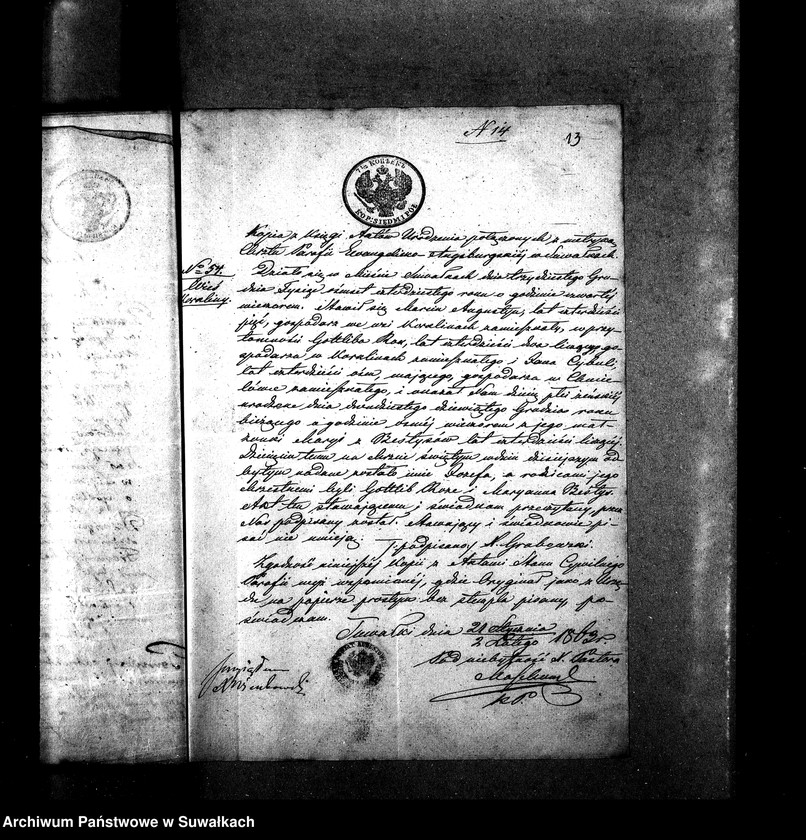 N 14
13
7½ КОПѢЕКЪ
KOP: SIEDM I PÓŁ
Kopia z Księgi Aktów Urodzenia połączonych z metryką
Chrztu Parafii Ewangelicko Augsburgskiej w Suwałkach.
No 54.
Wieś
Działo się w Mieście Suwałkach dnia trzydziestego Gru-
dnia Tysiąc ośmset czterdziestego roku o godzinie czwartej
wieczorem. Stawił się Marcin Augustyn, lat czterdzieści
pięć, gospodarz we wsi zamieszkały, w przy-
tomności Gottliba lat czterdzieści dwa liczącego go-
spodarza w zamieszkałego i Jana
lat czterdzieści ośm mającego, gospodarza w
zamieszkałego, i okazał Nam dziecię płci żeńskiej
urodzone dnia dwudziestego dziewiątego Grudnia roku
bieżącego o godzinie ósmej wieczorem z jego mał-
żonki Maryi z lat czterdzieści liczącej.
Dziecięciu temu na Chrzcie świętym w dniu dzisiejszym od-
bytym nadane zostało imie Jozefa, a rodzicami jego
chrzestnemi byli Gottlib i Maryanna
Akt ten stawającemu i świadkom przeczytany, przez
Nas podpisany został. Stawający i świadkowie pi-
sać nie umieją. — /podpisano/ K. Grabowski.
Zgodność niniejszej Kopii z Aktami Stanu Cywilnego
Parafii wyż wspomnianej, gdzie Oryginał jako z Urzę-
du na papierze prostym bez stempla pisany, po-
świadczam.
Suwałki dnia 21 Stycznia
2 Lutego 1863 r
Pod niebytność X. Pastora